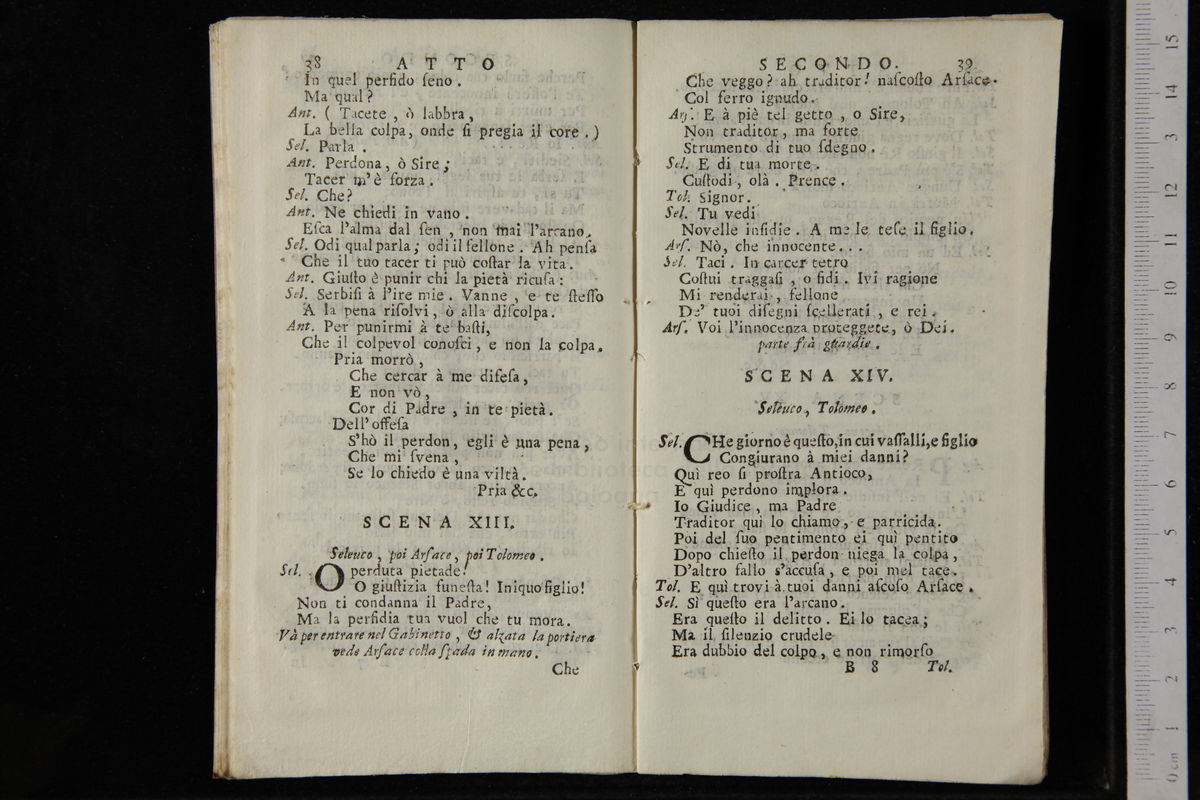 38 ATTO
In quel perfido ſeno.
Ma qual?
Ant. ( Tacete, ò labbra,
La bella colpa, onde ſi pregia il core. )
Sel. Parla.
Ant. Perdona, ò Sire;
Tacer m'è forza.
Sel. Che?
Ant. Ne chiedi in vano.
Eſca l'alma dal ſen, non mai l'arcano.
Sel. Odi qual parla; odi il fellone. Ah penſa
Che il tuo tacer ti può coſtar la vita.
Ant. Giuſto è punir chi la pietà ricuſa:
Sel. Serbiſi à l'ire mie. Vanne, e te ſteſſo
A la pena riſolvi, ò alla diſcolpa.
Ant. Per punirmi à te baſti,
Che il colpevol conoſci, e non la colpa.
Pria morrò,
Che cercar à me difeſa,
E non vò,
Cor di Padre, in te pietà.
Dell'offeſa
S'hò il perdon, egli è una pena,
Che mi ſvena,
Se lo chiedo è una viltà.
Pria &c.
SCENA XIII.
Seleuco, poi Arſace, poi Tolomeo.
Sel. O perduta pietade!
O giuſtizia funeſta! Iniquo figlio!
Non ti condanna il Padre,
Ma la perfidia tua vuol che tu mora.
Và per entrare nel Gabinetto, & alzata la portiera
vede Arſace colla ſpada in mano.
Che
SECONDO. 39
Che veggo? ah traditor! naſcoſto Arſace.
Col ferro ignudo.
Arſ. E à piè tel getto, o Sire,
Non traditor, ma forte
Strumento di tuo ſdegno.
Sel. E di tua morte.
Cuſtodi, olà. Prence.
Tol. Signor.
Sel. Tu vedi
Novelle inſidie. A me le teſe il figlio.
Arſ. Nò, che innocente...
Sel. Taci. In carcer tetro
Coſtui traggaſi, o fidi. Ivi ragione
Mi renderai, fellone
De' tuoi diſegni ſcellerati, e rei.
Arſ. Voi l'innocenza proteggete, ò Dei.
parte frà guardie.
SCENA XIV.
Seleuco, Tolomeo.
Sel. CHe giorno è queſto, in cui vaſſalli, e figlio
Congiurano à miei danni?
Quì reo ſi proſtra Antioco,
E quì perdono implora.
Io Giudice, ma Padre
Traditor quì lo chiamo, e parricida.
Poi del ſuo pentimento ei quì pentito
Dopo chieſto il perdon niega la colpa,
D'altro fallo s'accuſa, e poi mel tace.
Tol. E quì trovi à tuoi danni aſcoſo Arſace.
Sel. Sì queſto era l'arcano.
Era queſto il delitto. Ei lo tacea;
Ma il ſilenzio crudele
Era dubbio del colpo, e non rimorſo
B 8 Tol.
0 cm 1 2 3 4 5 6 7 8 9 10 11 12 13 14 15